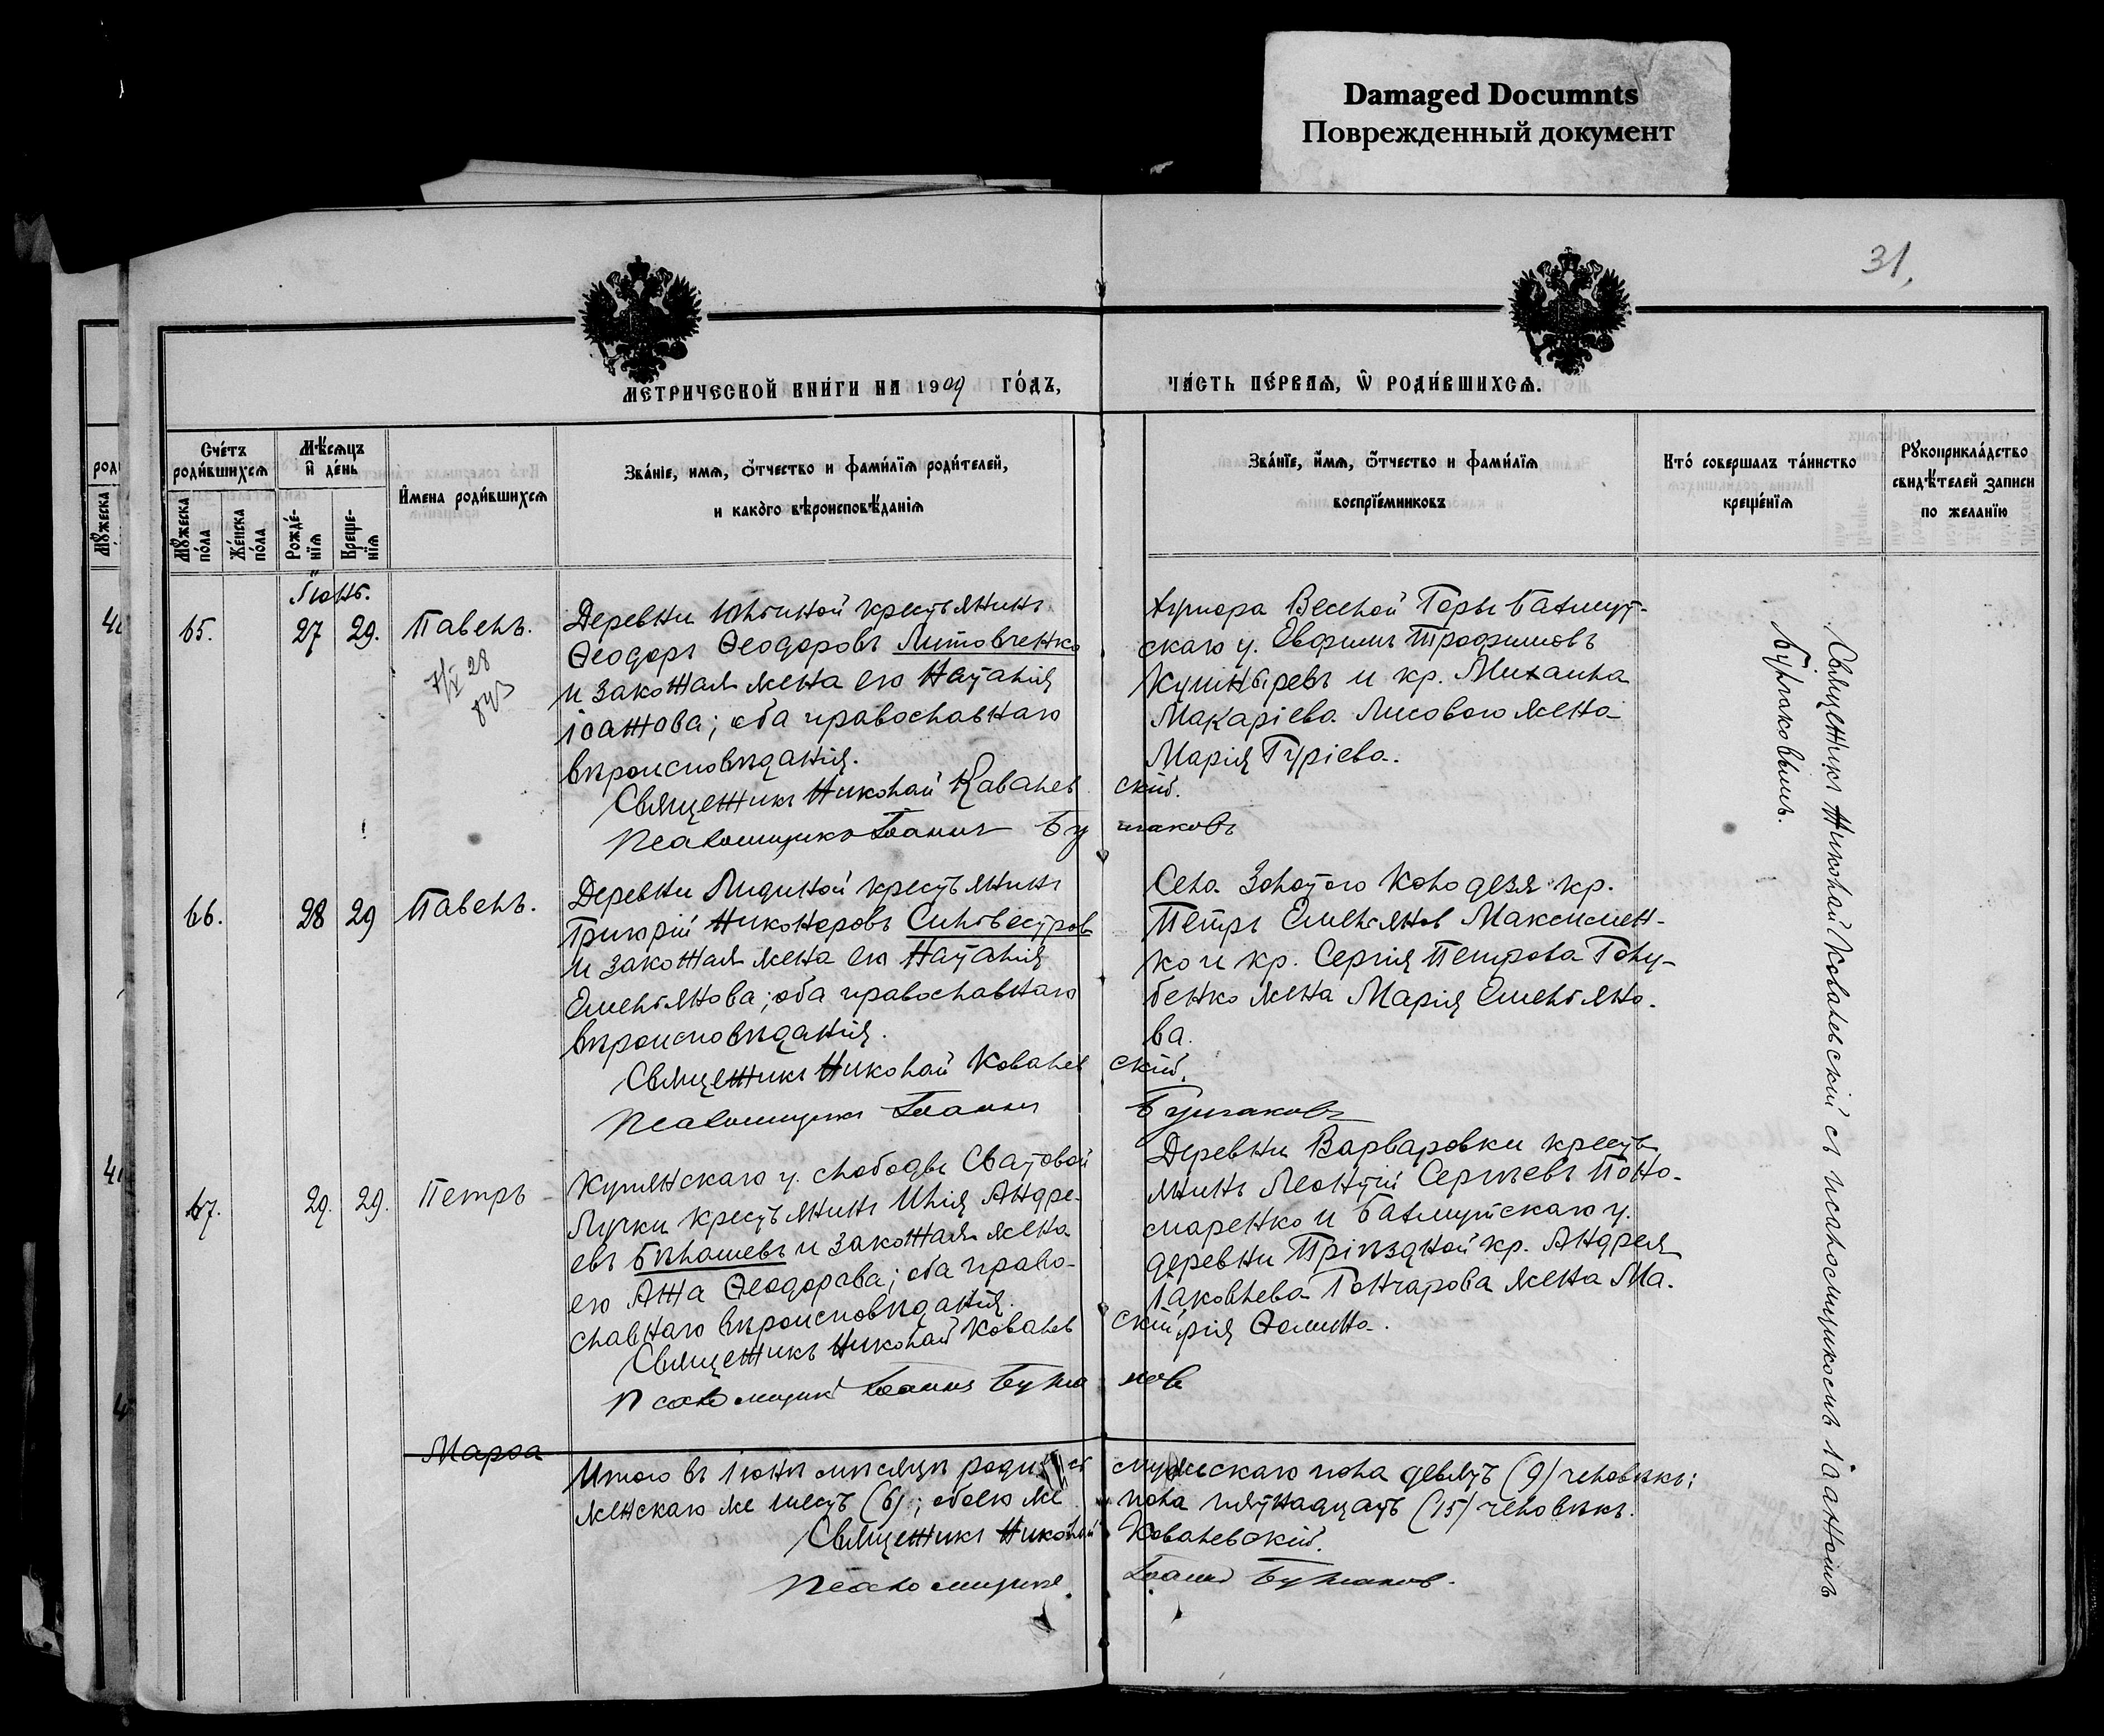 Damaged Documnts
Поврежденный документ
31.
МЕТРИЧЕСКОЙ КНИГИ НА 1909 ГОДЪ,
ЧАСТЬ ПЕРВАЯ, Ѽ РОДИВШИХСЯ.
Счетъ родившихся
Мꙋжеска пола
Женска пола
Мѣсяцъ и день
Рожденія
Крещенія
Имена родившихся
Званіе, имя, ѻтчество и фамилія родителей,
и какого вѣроисповѣданія
Званіе, имя, ѻтчество и фамилія
воспріемниковъ
Кто совершалъ таинство
крещенія
Рꙋкоприкладство
свидѣтелей записи
по желанію
Іюнь.
65.
27
29.
Павелъ.
7/V 28
Деревни Ильиной крестьянинъ
Ѳеодоръ Ѳеодоровъ Литовченко
и законная жена его Наталія
Іоаннова; оба православнаго
вѣроисповѣданія.
Хутора Веселой Горы Бахмут-
скаго у. Евфимъ Трофимовъ
Кушнаревъ и кр. Михаила
Макаріева Лисового жена
Марія Гуріева.
Священникъ Николай Ковалевскій.
Псаломщикъ Іоаннъ Булгаковъ
66.
28
29
Павелъ.
Деревни Лидиной крестьянинъ
Григорій Никоноровъ Сильвестров
и законная жена его Наталія
Емельянова; оба православнаго
вѣроисповѣданія.
Села Золотого Колодезя кр.
Петръ Емельянов Максимен-
ко и кр. Сергія Петрова Голу-
бенко жена Марія Емельяно-
ва.
Священникъ Николай Ковалевскій.
Псаломщикъ Іоаннъ Булгаковъ
67.
29.
29.
Петръ
Купянскаго у. слободы Сватовой
Лучки крестьянинъ Илія Андре-
евъ Бѣлашевъ и законная жена
его Анна Ѳеодорова; оба право-
славнаго вѣроисповѣданія.
Деревни Варваровки кресть-
янинъ Леонтій Сергѣевъ Поно-
маренко и Бахмутскаго у.
деревни Пріѣздной кр. Андрея
Іаковлева Гончарова жена Ма-
рія Ѳомина.
Священникъ Николай Ковалевскій
Псаломщикъ Іоаннъ Булгаков
Священникъ Николай Ковалевскій съ псаломщикомъ Іоанномъ
Булгаковымъ.
Марѳа
Итого въ Іюнѣ мѣсяцѣ родилось мужескаго пола девять (9) человѣкъ;
женскаго же шесть (6); обоего же пола пятнадцать (15) человѣкъ.
Священникъ Николай Ковалевскій.
Псаломщикъ Іоаннъ Булгаков.